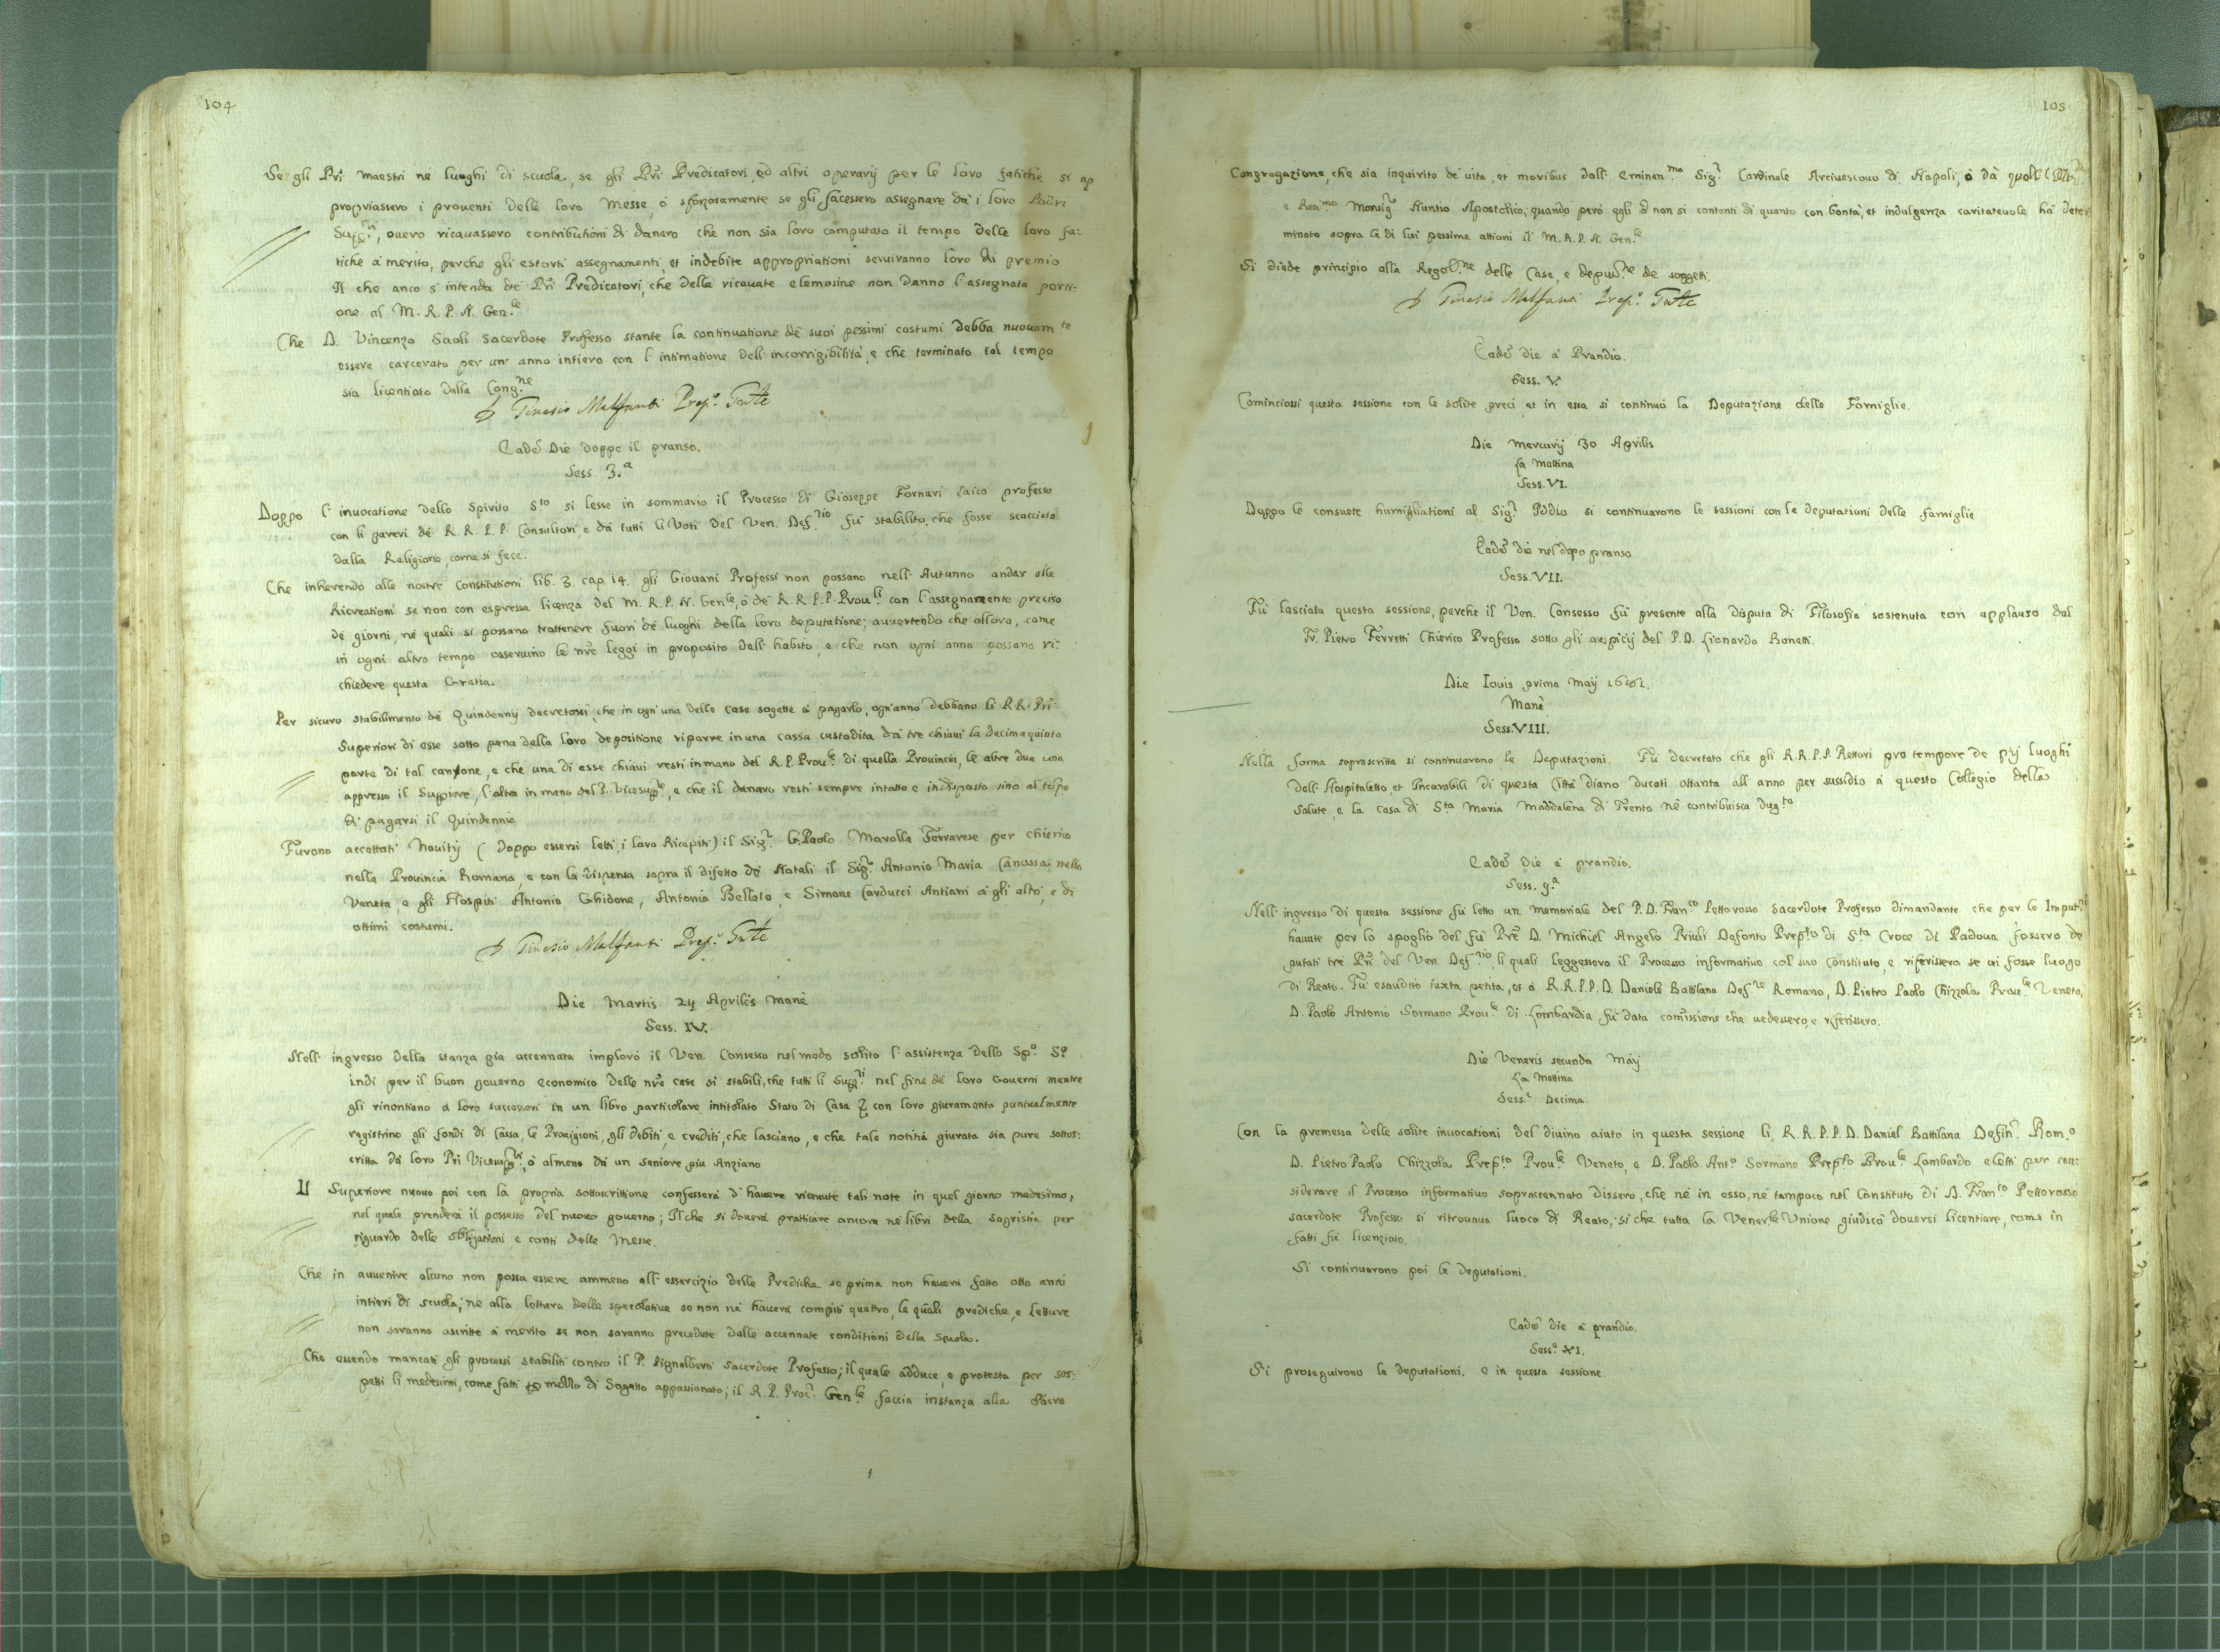 104
Se gli Pri maestri né luoghi di scuola, se gli Pri Predicatori, ed altri operarij per le loro fatiche si ap
propriassero i prouenti delle loro Messe, ó sforzosamente se gli facessero assegnare dà i loro Padri
Sup.ri, ouero ricauassero contributioni di danaro che non sia loro computato il tempo delle loro fa:
tiche á merito, perche gli estorti assegnamenti, et indebite appropriationi seruiranno loro di premio
Il che anco s'intenda dè Pri Predicatori, che delle ricauate elemosine non danno l'assegnata porti:
one al M. R. P. N. Gen.le
Che D. Vincenzo Saoli Sacerdote Professo stante la continuatione dè suoi pessimi costumi debba nuouam.te
essere carcerato per un'anno intiero con l'intimatione dell'incorrigibilità, e che terminato tal tempo
sia licentiato dalla Cong.ne
Eadē Die doppo il pranso.
Sess 3.a
Doppo l'inuocatione dello Spirito S.to si lesse in sommario il Processo di Gioseppe Fornari Laico professo
con li pareri dé R. R. P. P. Consultori, e dá tutti li Voti del Ven. Def.rio fú stabilito, che fosse scacciato
dalla Religione, come si fece.
Che inherendo alle nostre Constitutioni lib. 3. cap. 14. gli Giouani Professi non possano nell'Autunno andar alle
Ricreationi se non con espressa licenza del M. R. P. N. Gen.le, ó dé R. R. P. P. Prou.li con l'assegnamento preciso
dé giorni, né quali si possano trattenere fuori dé luoghi della loro deputatione; auuertendo che allora, come
in ogni altro tempo osseruino le nr̄e leggi in proposito dell'habito, e che non ogni anno possano ri:
chiedere questa Gratia.
Per sicuro stabilimento dé Quindennij decretossi, che in ogn'una delle Case sogette á pagarlo, ogn'anno debbano li R. R. Pri
Superiori di esse sotto pena della loro depositione riporre in una cassa custodita dà tre chiaui la decimaquinta
parte di tal canone, e che una di esse chiaui resti in mano del R. P. Prou.le di quella Prouincia, le altre due una
appresso il Supriore, l'altra in mano del P. Vicesup.re, e che il danaro resti sempre intatto e indisposto sino al tēpo
di pagarsi il Quindennio
Furono accettati Nouitij (doppo essersi letti i loro Ricapiti) il Sig.r G. Paolo Marolla Ferrarese per chierico
nella Prouincia Romana, e con la dispensa sopra il difetto dé Natali il Sig.r Antonio Maria Canossa nella
Veneta, e gli Hospiti Antonio Ghidone, Antonio Bellato, e Simone Carducci Antiani á gli altri, e di
ottimi costumi.
Die Martis 29 Aprilis mané
Sess. IV.
Nell'ingresso della stanza gia accennata imploró il Ven. Consesso nel modo solito l'assistenza dello Sp.o S.o
indi per il buon gouerno economico delle nr̄e case si stabili, che tutti li Sup.ri nel fine dé loro Gouerni mentre
gli rinontiano á loro successori in un libro particolare intitolato Stato di Casa con loro giuramento puntualmente
registrino gli fondi di Cassa, le Prouigioni, gli debiti, e crediti, che lasciano, e che tale notitia giurata sia pure sottos:
critta dá loro Pri Vicesup.ri, ó almeno dá un seniore piu Anziano
Il Superiore nuouo poi con la propria sottoscrittione confesserá d'hauere riceuute tali note in quel giorno medesimo,
nel quale prenderá il possesso del nuouo gouerno; Il che si douerá pratticare ancora né libri della Sagristia per
riguardo delle obligationi e conti delle Messe.
Che in auuenire alcuno non possa essere ammesso all'essercizio delle Prediche se prima non hauerá fatto otto anni
intieri di scuola; né alla lettura delle specolatiue se non né hauerá compiti quattro, le quali prediche, e letture
non saranno ascritte á merito se non saranno precedute dalle accennate conditioni della Scuola.
Che essendo mancati gli processi stabiliti contro il P. Pignalberti Sacerdote Professo; il quale adduce, e protesta per sos:
petti li medesimi, come fatti di Sogetto appassionato; il R. P. Proc.r Gen.le faccia instanza alla Sacra
105
Congregazione, che sia inquirito de uita, et moribus dall'Eminen.mo Sig.r Cardinale Arciuescouo di Napoli, ó dà
e Reu.mo Monsig.r Nuntio Apostolico; quando peró egli non si contenti di quanto con bontà, et indulgenza caritateuole há deter
minato sopra le di lui pessime attioni il M. R. P. N. Gen.le
Si diede principio alla Regol.ne delle Case, e deput.ne de soggetti.
Eadē die á Prandio.
Sess. V.
Cominciossi questa sessione con le solite preci, et in essa si continuó la Deputazione delle Famiglie.
Die Mercurij 30 Aprilis
La Mattina
Sess. VI.
Doppo le consuete humigliationi al Sig.r Iddio si continuarono le sessioni con le deputationi delle famiglie
Eadē die nel dopo pranso
Sess. VII.
Fú lasciata questa sessione, perche il Ven. Consesso fú presente alla disputa di Filosofia sostenuta con applauso dal
Fr. Pietro Ferretti Chierico Professo sotto gli auspicij del P. D. Lionardo Bonetti.
Die Iouis prima Maij 1661.
Mané
Sess. VIII.
Nella forma soprascritta si continuarono le Deputazioni. Fú decretato che gli R. R. P. P. Rettori pro tempore de pij luoghi
dell'Hospitaletto, et Incurabili di questa Città diano ducati ottanta all'anno per sussidio á questo Collegio della
Salute, e la casa di S.ta Maria Maddalena di Trento né contribuisca
Eadē die á prandio.
Sess. 9.a
Nell'ingresso di questa sessione fú letto un memoriale del P. D. Fran.co Pettorosso Sacerdote Professo dimandante che per le Imput.ni
hauute per lo spoglio del fú Prē D. Michiel Angelo Priuli Defonto Prep.to di S.ta Croce di Padoua fossero de
putati tré Pri del Ven. Def.rio, li quali leggessero il Processo informatiuo col suo Constituto, e riferissero se ui fosse luogo
di Reato. Fú esaudito iuxta petita, et á R. R. P. P. D. Daniele Battilana Def.re Romano, D. Pietro Paolo Chizzola Prou.le Veneto,
D. Paolo Antonio Sormano Prou.le di Lombardia fú data com̄issione che uedessero, e riferissero.
Die Veneris secunda Maij
La Mattina
Sess.e Decima.
Con la premessa delle solite inuocationi del diuino aiuto in questa sessione li R. R. P. P. D. Daniel Battilana Defin.r Rom.o
D. Pietro Paolo Chizzola Prep.to Prou.le Veneto, e D. Paolo Ant.o Sormano Prep.to Prou.le Lombardo eletti per con:
siderare il Processo informatiuo sopraccennato dissero, che né in esso, né tampoco nel Constituto di D. Fran.co Pettorosso
sacerdote Professo si ritrouaua luoco di Reato, si che tutta la Vener.le Unione giudicó douersi licentiare, come in
fatti fú licenziato.
Si continuarono poi le deputationi.
Eadē die á prandio.
Sess.e XI.
Si proseguirono le deputationi. e in questa sessione